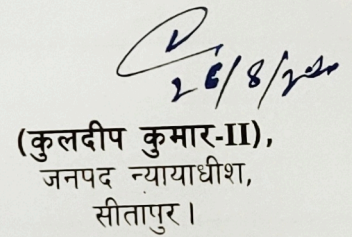 26/8/20
(कुलदीप कुमार-II),
जनपद न्यायाधीश,
सीतापुर।